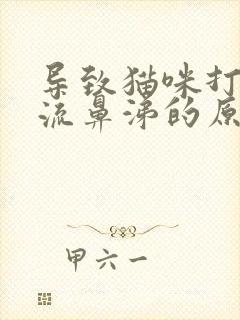 导致猫咪打
流鼻涕的原
甲六一